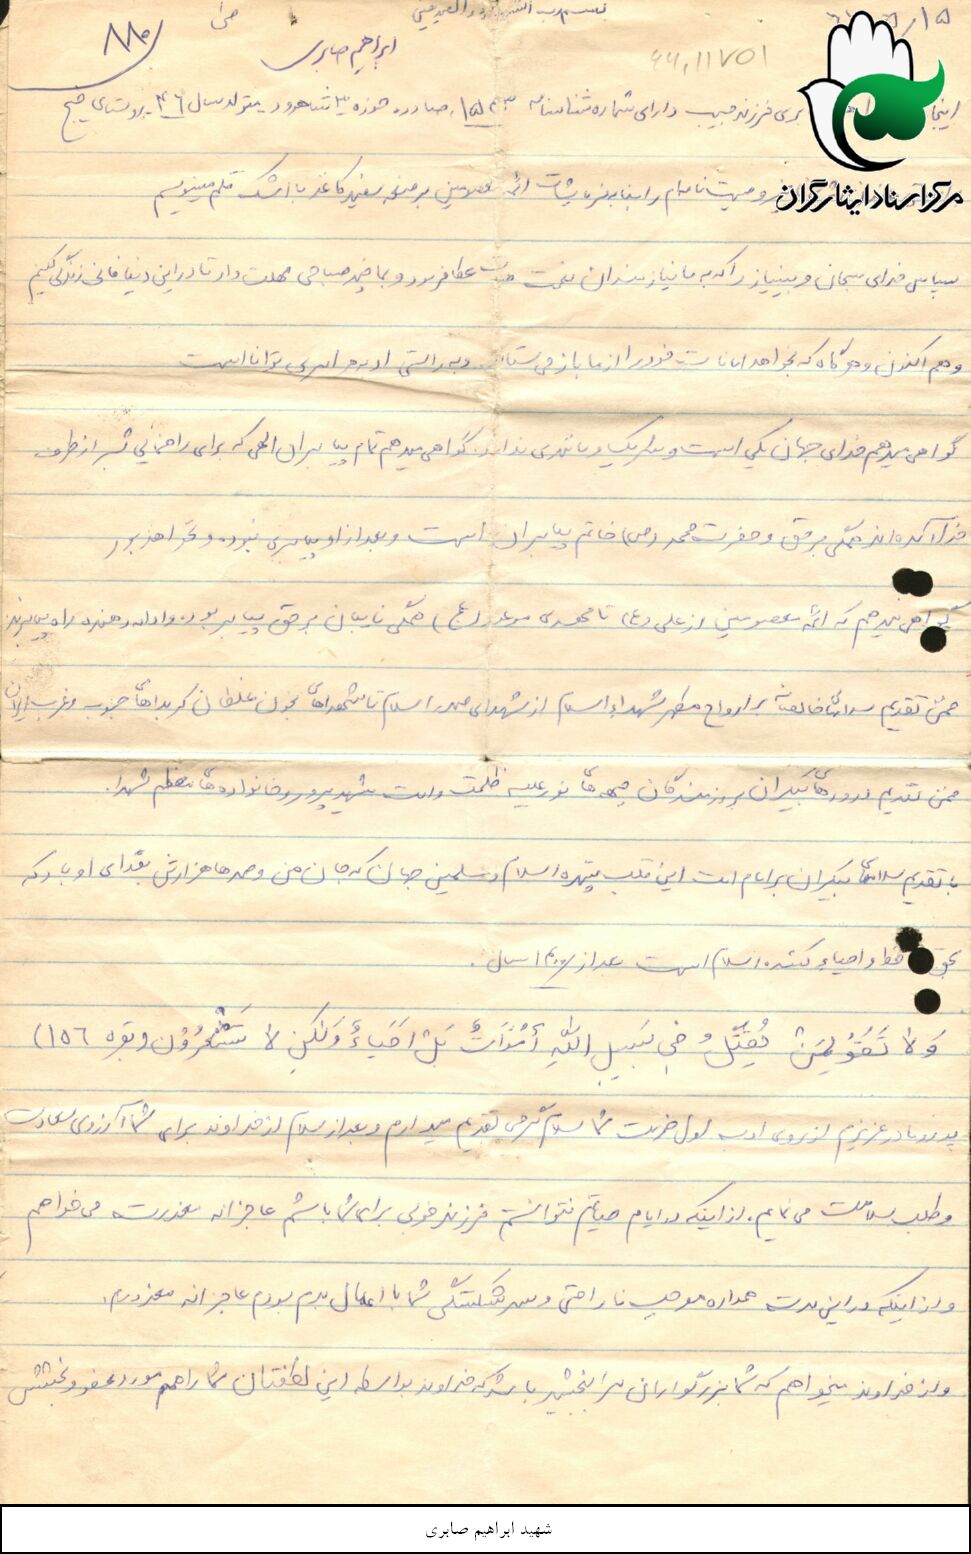 بسم رب الشهداء و الصدیقین
ص ۱
۱۵
۸۸۵
ابراهیم صابری
۶۶,۱۱۷۵۱
اینجا بری فرزند حبیب دارای شماره شناسنامه صادره حوزه ۳ شاهرود متولد سال ۴۶ روستای میج
مرکز اسناد ایثارگران
وصیت نامه ام را بنا به فرمایشات ائمه معصومین بر صفحه سفید کاغذ با اشک قلم مینویسم
سپاس خدای سبحان و بینیاز را که به ما نیازمندان نعمت عطا فرمود و بما چند صباحی مهلت داد تا در این دنیا فانی زندگی کنیم
و هم اکنون و هر گاه که بخواهد امانات خود را از ما باز می ستاند و به راستی او به هر امری توانا است
گواهی میدهم خدای جهان یکی است و شریک و مانندی ندارد. گواهی میدهم تمام پیامبران الهی که برای راهنمایی بشر از طرف
خدا آمده اند همگی بر حق و حضرت محمد (ص) خاتم پیامبران است و بعد از او پیامبری نبوده و نخواهد بود
گواهی میدهم که ائمه معصومین از علی (ع) تا مهدی موعود (عج) همگی نایبان بر حق پیامبر بوده و ادامه دهنده راه پیامبرند
ضمن تقدیم سلامهای خالصانه بر ارواح مطهر شهداء اسلام از شهدای صدر اسلام تا شهداهای بخون غلطان کربلاهای جنوب و غرب ایران
ضمن تقدیم درودهای بیکران بر رزمندگان جبهه های نور علیه ظلمت و امت شهید پرور و خانواده های معظم شهدا.
با تقدیم سلامهای بیکران بر امام امت این قلب تپنده اسلام و مسلمین جهان که جان من و صدها هزارش بفدای او باد که
بحق حافظ و احیاء کننده اسلام است بعد از ۱۴۰۰ سال .
وَلا تَقُولُوا لِمَن یُقتَلُ فی سَبیلِ اللهِ اَمواتٌ بَل اَحیاءٌ وَلکِن لا تَشعُرُون (بقره ۱۵۶)
پدر و مادر عزیزم از روی ادب اول خدمت شما سلام گرمی تقدیم میدارم و بعد از سلام از خداوند برای شما آرزوی سعادت
و طلب سلامت می نمایم. از اینکه در ایام حیاتم نتوانستم فرزند خوبی برای شما باشم عاجزانه معذرت می خواهم
و از اینکه در این مدت همواره موجب ناراحتی و سرشکستگی شما با اعمال بدم بودم عاجزانه معذورم.
و از خداوند میخواهم که شما بزرگواران مرا ببخشید باشد که خداوند بواسطه این لطفتان شما را هم مورد عفو و بخشش
شهید ابراهیم صابری